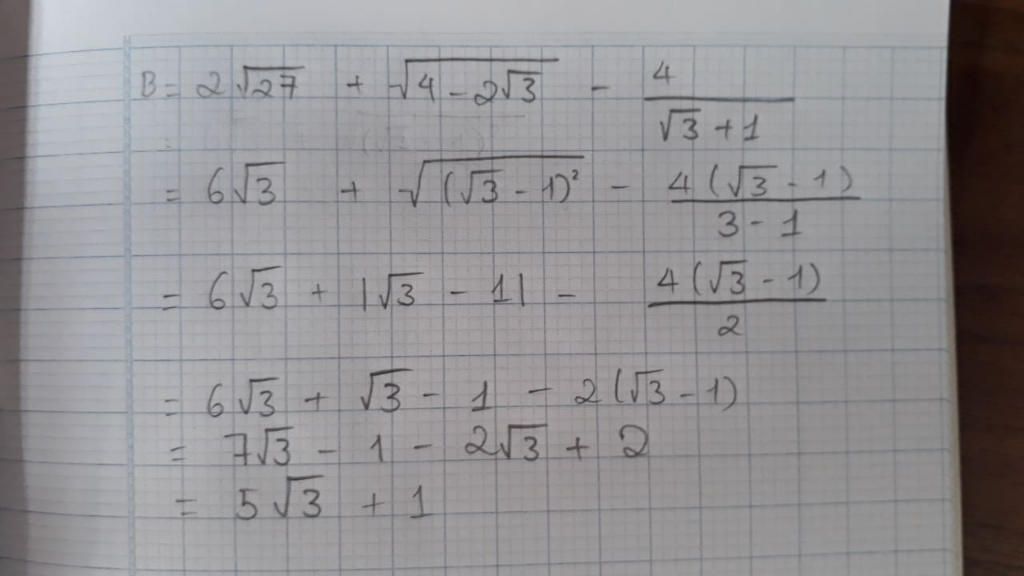 B = 2√27 + √(4 - 2√3) - 4/(√3 + 1)
= 6√3 + √((√3 - 1)²) - 4(√3 - 1)/(3 - 1)
= 6√3 + |√3 - 1| - 4(√3 - 1)/2
= 6√3 + √3 - 1 - 2(√3 - 1)
= 7√3 - 1 - 2√3 + 2
= 5√3 + 1